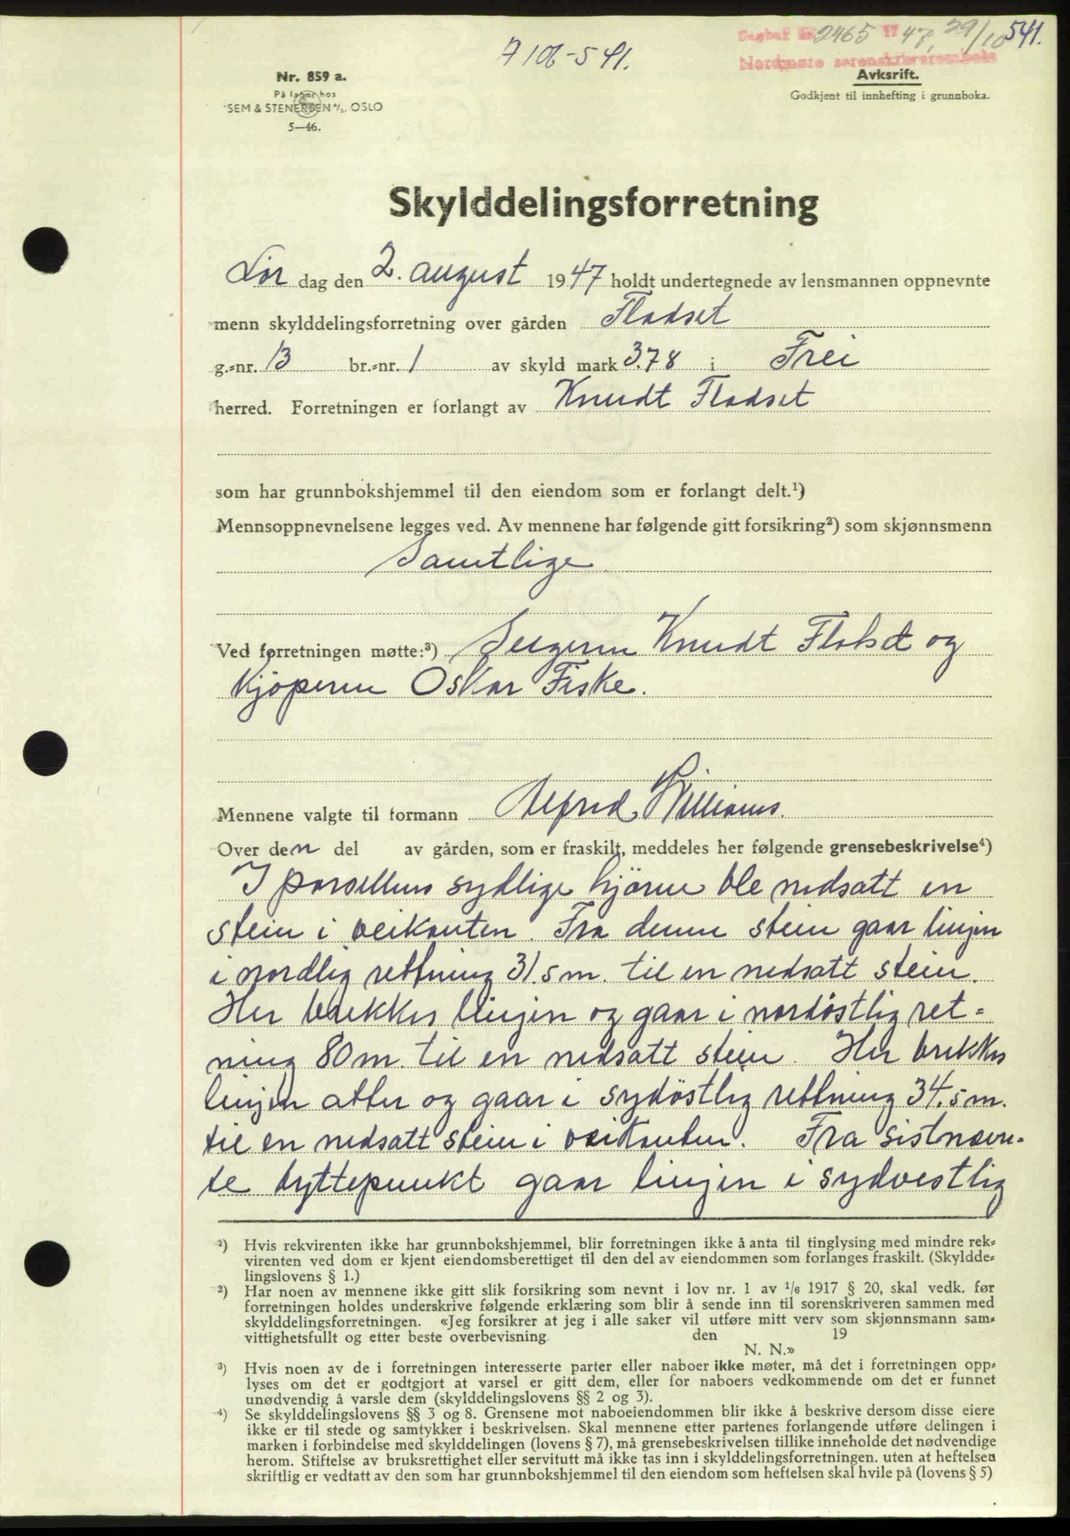 Dagbok nr. 2465 1947, 29/10 541.
Nordmøre sorenskriverembete
7106-541.
Nr. 859 a.
På lager hos
SEM & STENERSEN A/S, OSLO
5—46.
Avkskrift.
Godkjent til innhefting i grunnboka.
Skylddelingsforretning
Lør dag den 2. august 1947 holdt undertegnede av lensmannen oppnevnte
menn skylddelingsforretning over gården Fladset
g.-nr. 13 br.-nr. 1 av skyld mark 3.78 i Frei
herred. Forretningen er forlangt av Knudt Fladset
som har grunnbokshjemmel til den eiendom som er forlangt delt.¹)
Mennsoppnevnelsene legges ved. Av mennene har følgende gitt forsikring²) som skjønnsmenn
Samtlige
Ved forretningen møtte:³) Selgeren Knudt Fladset og
kjøperen Oskar Fiske.
Mennene valgte til formann Alfred Williams.
Over den del av gården, som er fraskilt, meddeles her følgende grensebeskrivelse⁴)
I parsellens sydlige hjørne ble nedsatt en
stein i veikanten. Fra denne stein gaar linjen
i nordlig rettning 31.5 m. til en nedsatt stein.
Her brekkes linjen og gaar i nordöstlig ret-
ning 80 m. til en nedsatt stein. Her brekkes
linjen atter og gaar i sydöstlig rettning 34.5 m.
til en nedsatt stein i veikanten. Fra sistnevn-
te byttepunkt gaar linjen i sydvestlig
¹) Hvis rekvirenten ikke har grunnbokshjemmel, blir forretningen ikke å anta til tinglysing med mindre rek-
virenten ved dom er kjent eiendomsberettiget til den del av eiendommen som forlanges fraskilt. (Skyldde-
lingslovens § 1.)
²) Har noen av mennene ikke gitt slik forsikring som nevnt i lov nr. 1 av 1/6 1917 § 20, skal vedk. før
forretningen holdes underskrive følgende erklæring som blir å sende inn til sorenskriveren sammen med
skylddelingsforretningen. «Jeg forsikrer at jeg i alle saker vil utføre mitt verv som skjønnsmann sam-
vittighetsfullt og etter beste overbevisning den 19
N. N.»
³) Hvis noen av de i forretningen interesserte parter eller naboer ikke møter, må det i forretningen opp-
lyses om det er godtgjort at varsel er gitt dem, eller for naboers vedkommende om det er funnet
unødvendig å varsle dem (skylddelingslovens §§ 2 og 3).
⁴) Se skylddelingslovens §§ 3 og 8. Grensene mot naboeiendommen blir ikke å beskrive dersom disse eiere
ikke er til stede og samtykker i beskrivelsen. Skal mennene etter partenes forlangende utføre delingen i
marken i forbindelse med skylddelingen (lovens § 7), må grensebeskrivelsen tillike inneholde det nødvendige
herom. Stiftelse av bruksrettighet eller servitutt må ikke tas inn i skylddelingsforretningen. uten at heftelsen
skriftlig er vedtatt av den som har grunnbokshjemmel til den eiendom som heftelsen skal hvile på (lovens § 5)